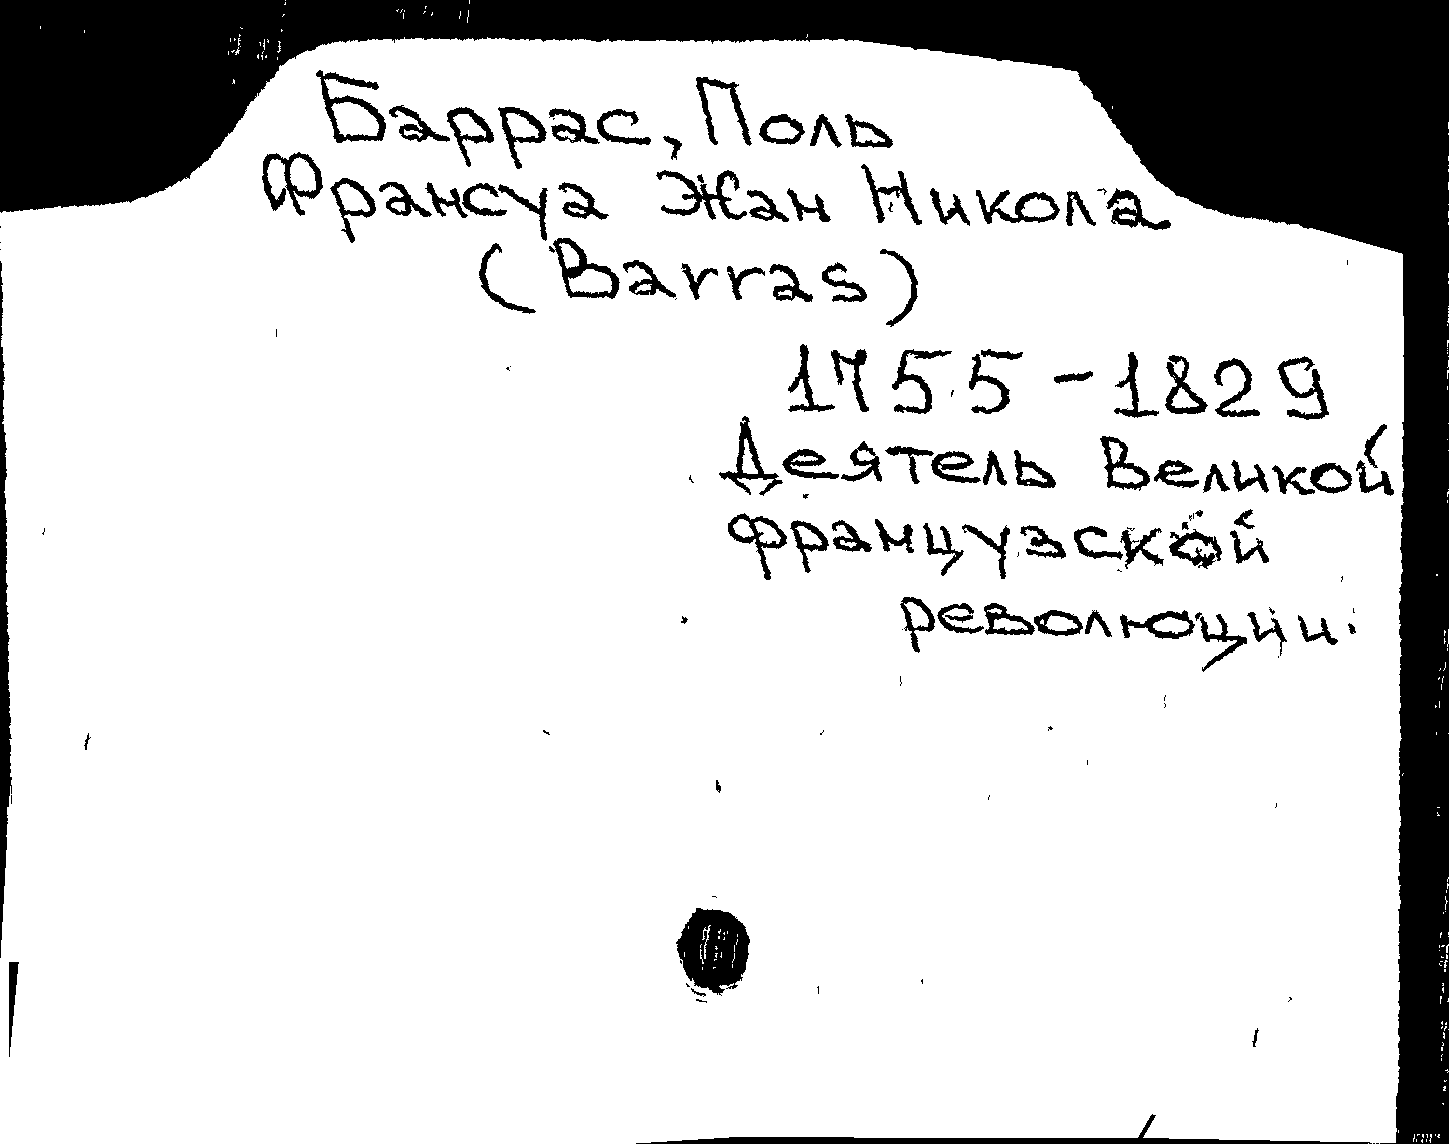 Баррас, Поль
Франсуа Жан Никола
(Barras)
1755-1829
Деятель Великой
французской
революции.